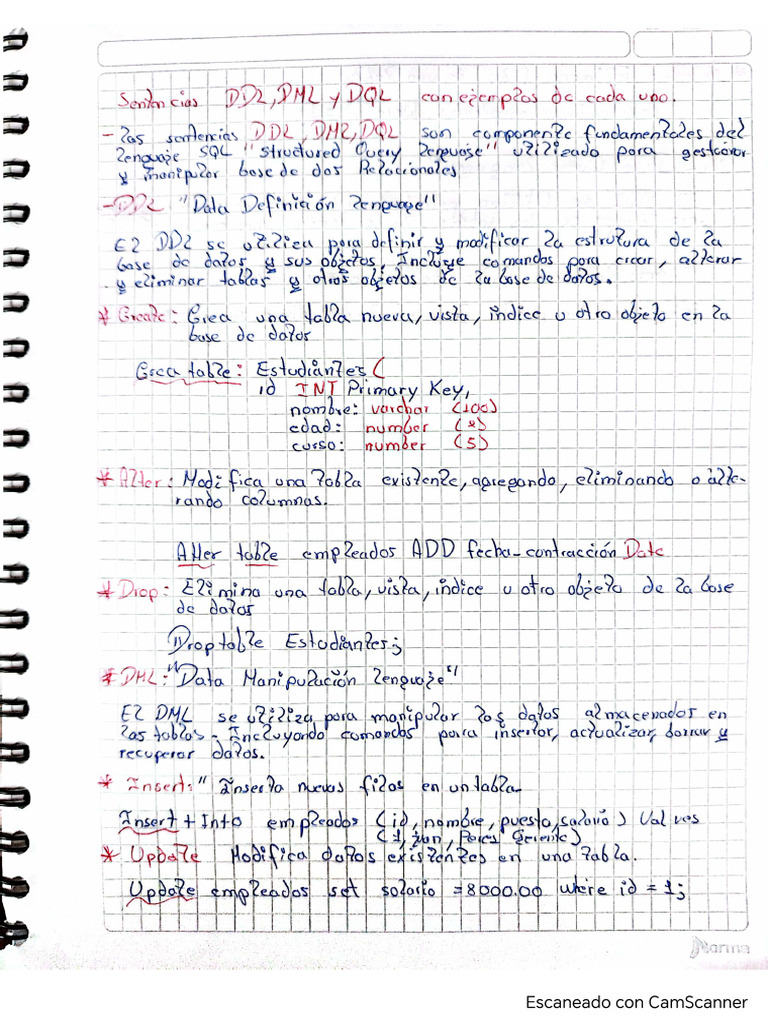 Sentencias DDL, DML y DQL con ejemplos de cada uno.
- las sentencias DDL, DML, DQL son componente fundamentales del
lenguaje SQL "structured Query lenguaje" utilizado para gestionar
y manipular base de dos Relacionales
- DDL "Data Definición lenguaje"
El DDL se utiliza para definir y modificar la estrutura de la
base de datos y sus objetos. Incluye comandos para crear, alterar
y eliminar tablas y otros objetos de la base de datos.
* Create: Crea una tabla nueva, vista, índice u otro objeto en la
base de datos
Crea table: Estudiantes (
id INT Primary Key,
nombre: varchar (100)
edad: number (2)
curso: number (5)
* Alter: Modifica una tabla existente, agregando, eliminando o alte-
rando columnas.
Alter table empleados ADD fecha_contracción Date
* Drop: Elimina una tabla, vista, índice u otro objeto de la base
de datos
Drop table Estudiantes;
* DML: "Data Manipulación lenguaje"
El DML se utiliza para manipular los datos almacenados en
las tablas. Incluyando comandos para insertar, actualizar, borrar y
recuperar datos.
* Insert: " Inserta nuevas filas en un tabla
Insert + Into empleados (id, nombre, puesto, salario) Values
(1, Peres Gerente)
* Update Modifica datos existentes en una tabla.
Update empleados set salario = 8000.00 where id = 1;
Norma
Escaneado con CamScanner